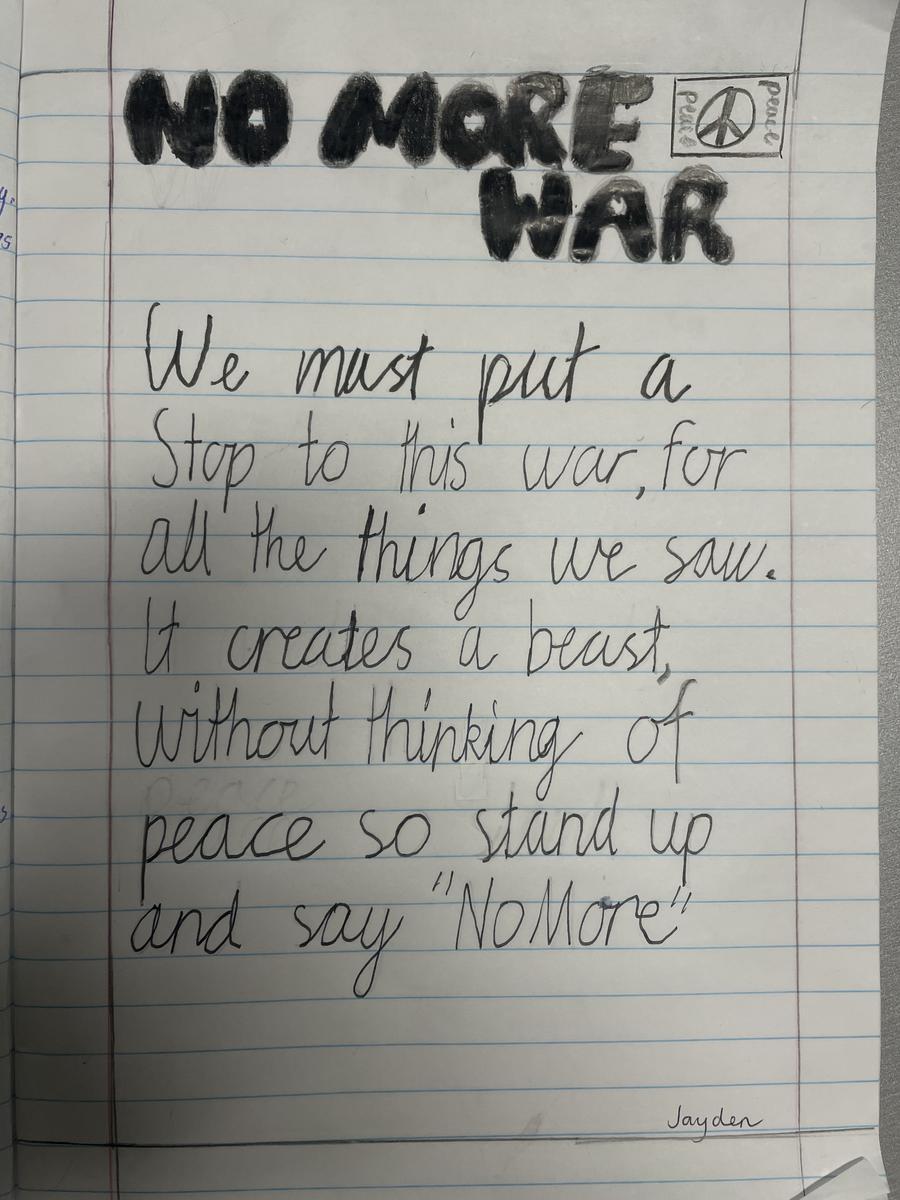 NO MORE
WAR
peace
peace
We must put a
Stop to this war, for
all the things we saw.
It creates a beast,
without thinking of
peace so stand up
and say "No More"
Jayden